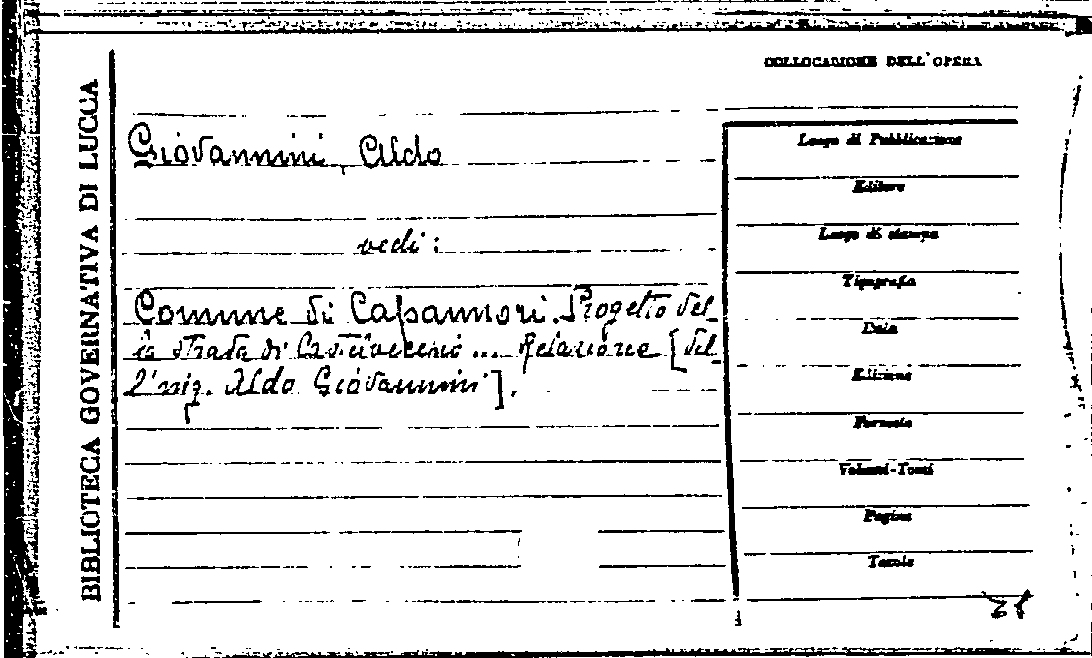 COLLOCAZIONE DELL'OPERA
BIBLIOTECA GOVERNATIVA DI LUCCA
Giovannini, Aldo
vedi:
Comune di Capannori. Progetto del-
la strada di ... Relazione [del-
l'ing. Aldo Giovannini].
Luogo di Pubblicazione
Editore
Luogo di stampa
Tipografia
Data
Edizione
Formato
Volumi-Tomi
Pagine
Tavole